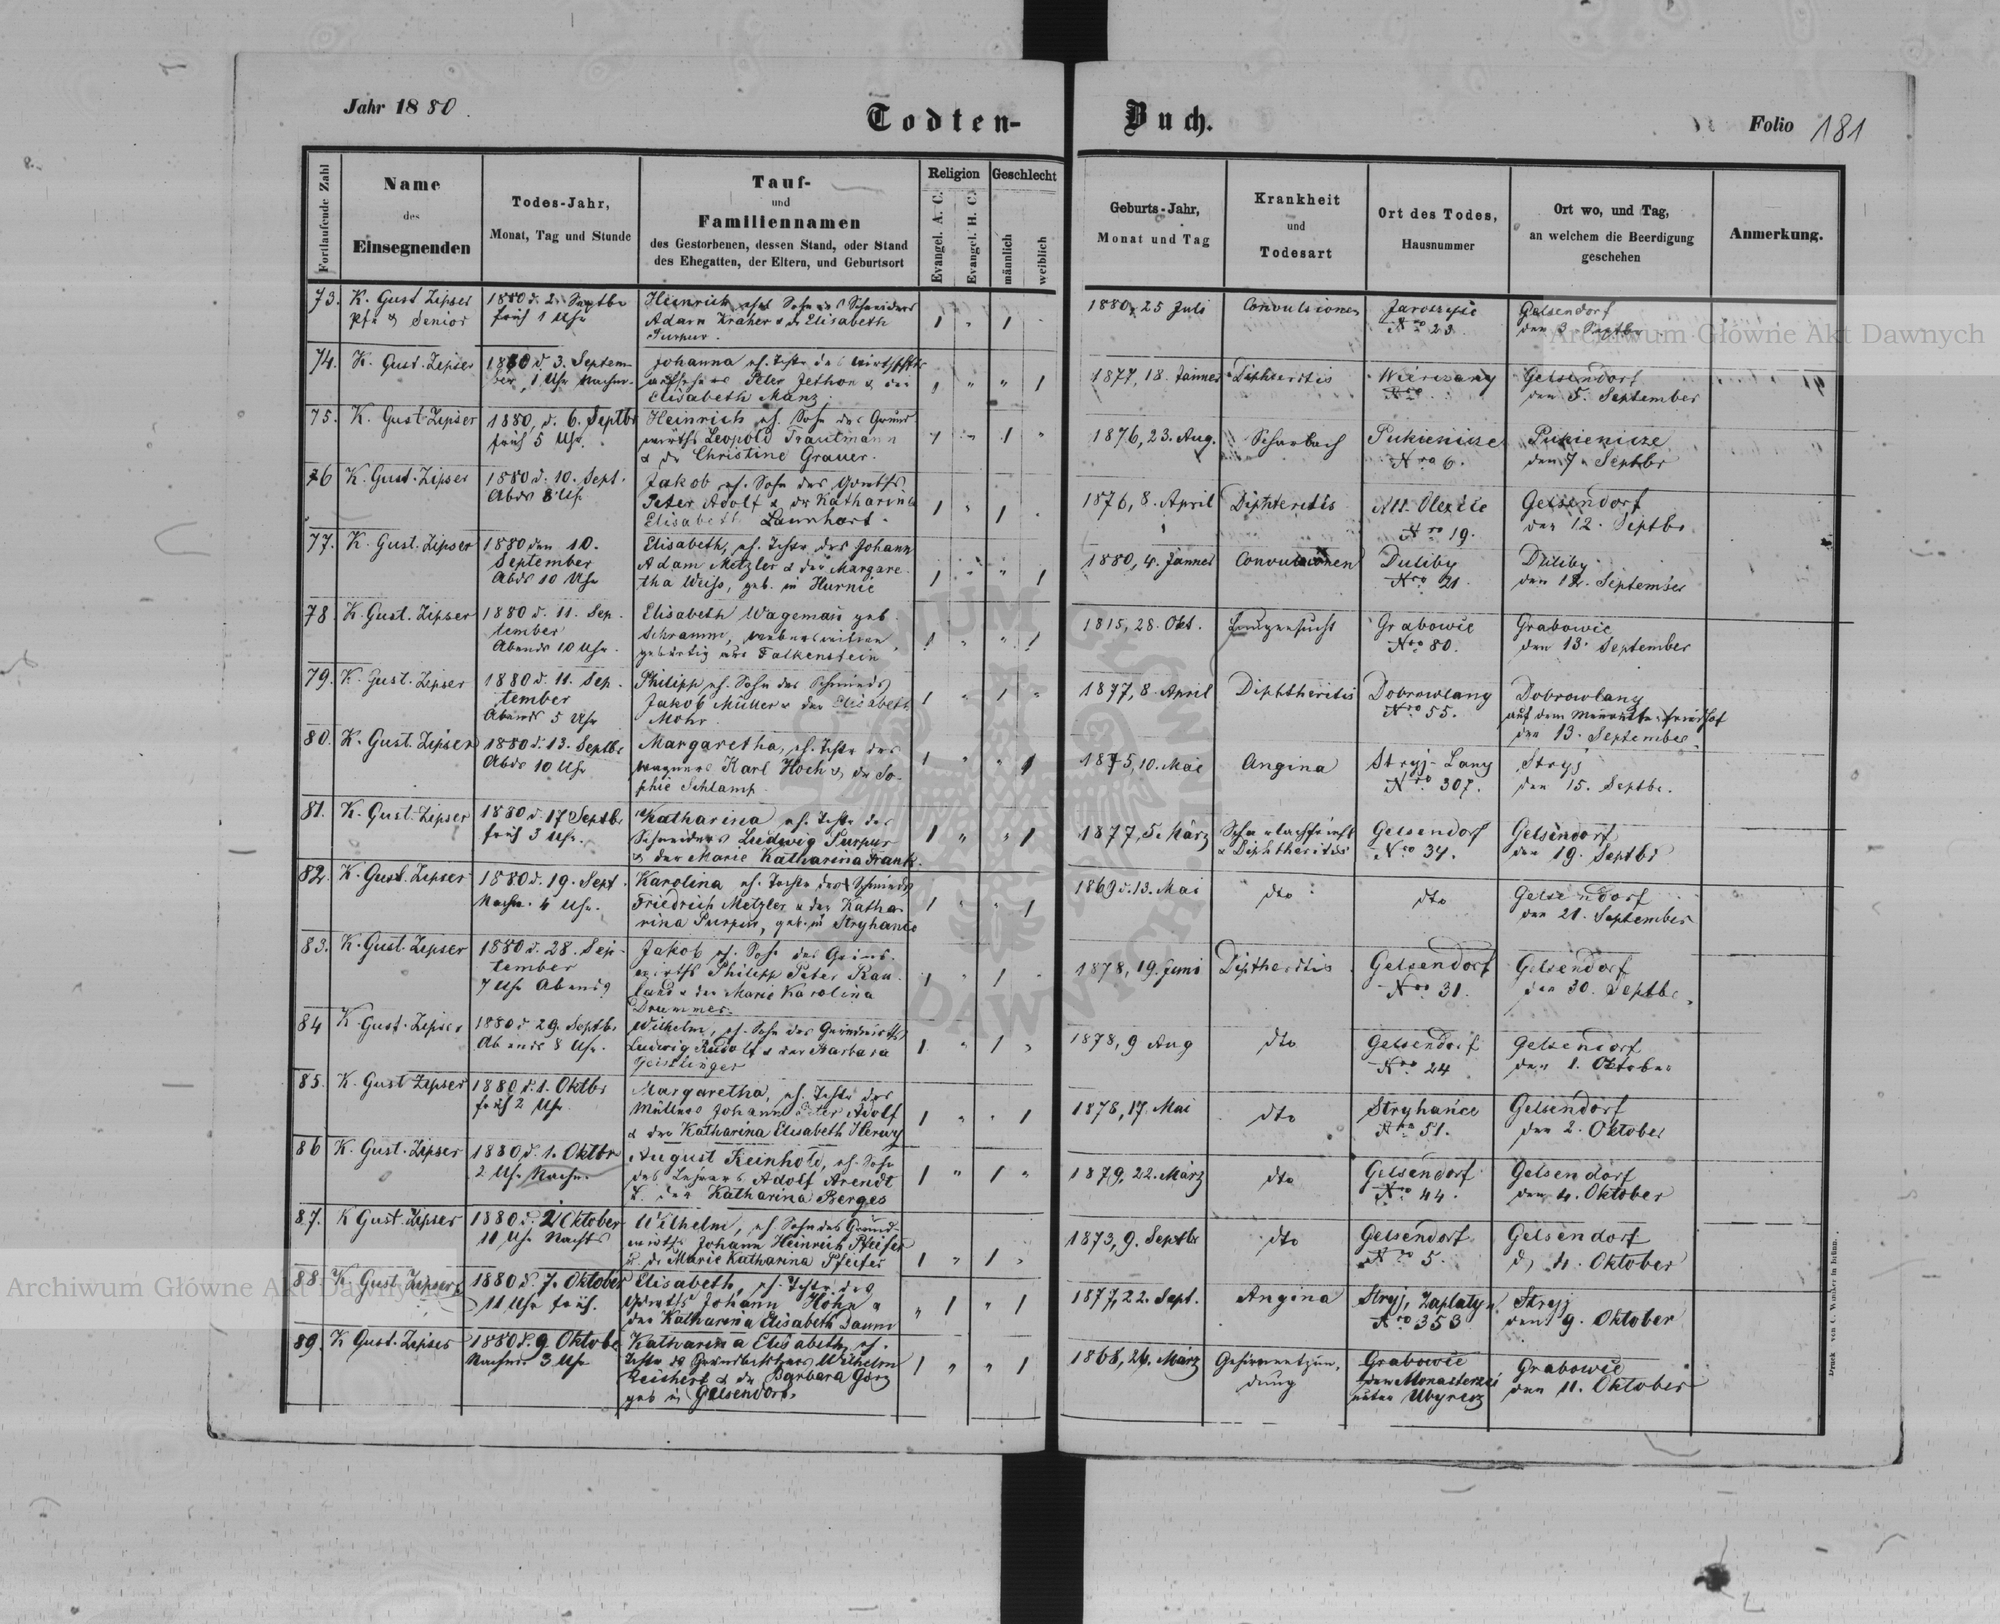 Jahr 1880.
Todten-Buch.
Folio 181
Fortlaufende Zahl
Name
des
Einsegnenden
Todes-Jahr,
Monat, Tag und Stunde
Tauf-
und
Familiennamen
des Gestorbenen, dessen Stand, oder Stand
des Ehegatten, der Eltern, und Geburtsort
Religion
Evangel. A. C.
Evangel. H. C.
Geschlecht
männlich
weiblich
Geburts-Jahr,
Monat und Tag
Krankheit
und
Todesart
Ort des Todes,
Hausnummer
Ort wo, und Tag,
an welchem die Beerdigung
geschehen
Anmerkung.
73. K. Gust Zipser
Pfr & Senior
1880 d. 2. Septbr
früh 1 Uhr
Heinrich, eh. Sohn des Schneiders
Adam Kraher & der Elisabeth
Purpur.
1 " 1
1880, 25 Juli
Convulsionen
Nro 23.
Gelsendorf
den 3. Septbr
74. K. Gust. Zipser
1880 d. 3. Septem
ber, 1 Uhr Nachm.
Johanna eh. Tchtr des
Peter Jethon & der
Elisabeth Manz.
1 " " 1
1877, 18. Jänner
Diphteritis
Wierczany
Nro
Gelsendorf
den 5. September
75. K. Gust. Zipser
1880, d. 6. Septbr
früh 5 Uhr.
Heinrich eh. Sohn des Grund
wirths Leopold Trautmann
& der Christine Grauer.
1 " 1 "
1876, 23. Aug.
Scharlach
Pukienicze
Nro 6.
Pukienicze
den 7. Septbr
76 K. Gust. Zipser
1880 d. 10. Sept.
Abds 8 Uhr
Jakob eh. Sohn des Gwirths
Peter Adolf & der Katharina
Elisabeth Launhart.
1 " 1 .
1876, 8. April
Diphteritis
Nro 19.
Gelsendorf
den 12. Septbr
77. K. Gust. Zipser
1880 den 10.
September
Abds 10 Uhr
Elisabeth, eh. Tchtr des Johann
Adam Metzler & der Margare
tha Weiss, geb. in Hurnie
1 " " 1
1880, 4. Jänner
Convulsionen
Duliby
Nro 21
Duliby
den 12. September
78 K. Gust. Zipser
1880 d. 11. Sep
tember
Abends 10 Uhr.
Elisabeth Wageman geb.
Schramm,
gebürtig aus Falkenstein
1 " " 1
1815, 28. Okt.
Lungensucht
Grabowie
Nro 80.
Grabowie
den 13. September
79. K. Gust. Zipser
1880 d. 11. Sep
tember
Abends 5 Uhr
Philipp, eh. Sohn des Schmieds
Jakob Müller & der Elisabeth
Mohr
1 " 1 "
1877, 8. April
Diphtheritis
Dobrowlany
Nro 55.
Dobrowlany
auf dem friedhof
den 13. September.
80. K. Gust. Zipser
1880 d. 13. Septbr
Abds 10 Uhr
Margaretha, eh. Tchtr des
Wagners Karl Hoch & der So
phie Schlamp.
1 " " 1
1875, 10. Mai
Angina
Stryj-Lany
Nro 307.
Stryj
den 15. Septbr.
81. K. Gust. Zipser
1880 d. 17 Septbr
früh 3 Uhr.
Katharina eh. Tchtr des
Schneiders Ludwig Purpur
& der Marie Katharina Frank.
1 " " 1
1877, 5. März
& Diphtheritis
Gelsendorf
Nro 34.
Gelsendorf
den 19. Septbr
82. K. Gust. Zipser
1880 d. 19. Sept.
Nachm. 4 Uhr.
Karolina eh. Tochter des Schmieds
Friedrich Metzler & der Katha
rina Purpur, geb. in Stryhance
1 " " 1
1869 d. 13. Mai
dto
dto
Gelsendorf
den 21. September
83. K. Gust. Zipser
1880 d. 28. Sep
tember
7 Uhr Abends
Jakob eh. Sohn des Grund
wirths Philipp Peter Rau
land & der Marie Karolina
Drummer.
1 " 1 .
1878, 19. Juni
Diptheritis
Gelsendorf
Nro 31.
Gelsendorf
den 30. Septbr.
84 K. Gust. Zipser
1880 d. 29. Septbr.
Abends 8 Uhr.
Wilhelm, eh. Sohn des Grundwirths
Ludwig Rudolf & der Barbara
Geistlinger
1 " 1 "
1878, 9 Aug
dto
Gelsendorf
Nro 24
Gelsendorf
den 1. Oktober
85. K. Gust Zipser
1880 d. 1. Oktbr
früh 2 Uhr
Margaretha, eh. Tchtr des
Müllers Johann Peter Adolf
& der Katharina Elisabeth Herwy
1 " " 1
1878, 17. Mai
dto
Stryhance
Nro 51.
Gelsendorf
den 2. Oktober
86 K. Gust. Zipser
1880 d. 1. Oktbr
2 Uhr Nachm.
August Reinhold, eh. Sohn
des Lehrers Adolf Arendt
& der Katharina Berges
1 " 1 "
1879, 22. März
dto
Gelsendorf
Nro 44.
Gelsendorf
den 4. Oktober
87. K Gust. Zipser
1880 d. 2 Oktober
11 Uhr Nachts
Wilhelm, eh. Sohn des Grund
wirths Johann Heinrich Pfeifer
& der Marie Katharina Pfeifer
1 " 1 "
1873, 9. Septbr
dto
Gelsendorf
Nro 5.
Gelsendorf
d. 4. Oktober
88. K. Gust. Zipser
1880 d. 7. Oktober
11 Uhr früh.
Elisabeth, eh. Tchtr des
Gwirths Johann Höhn &
der Katharina Elisabeth Daum
" 1 " 1
1877, 22. Sept.
Angina
Stryj, Zaplatyn
Nro 353
Stryj
den 9. Oktober
89. K Gust. Zipser
1880 d. 9 Oktober
Nachm. 3 Uhr
Katharina Elisabeth, eh.
Tchtr des Grundbesitzers Wilhelm
Reichert & der Barbara Görz
geb in Gelsendorf.
1 " " 1
1868, 24. März
Gehirnentzün
dung
Grabowie
Grabowie
den 11. Oktober
Archiwum Główne Akt Dawnych
Archiwum Główne Akt Dawnych